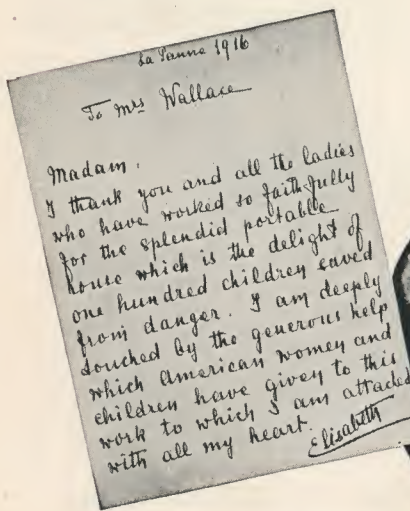 La Panne 1916
To Mrs Wallace
Madam.
I thank you and all the ladies
who have worked so faithfully
for the splendid portable
house which is the delight of
one hundred children saved
from danger. I am deeply
touched by the generous help
which American women and
children have given to this
work to which I am attached
with all my heart.
Elisabeth